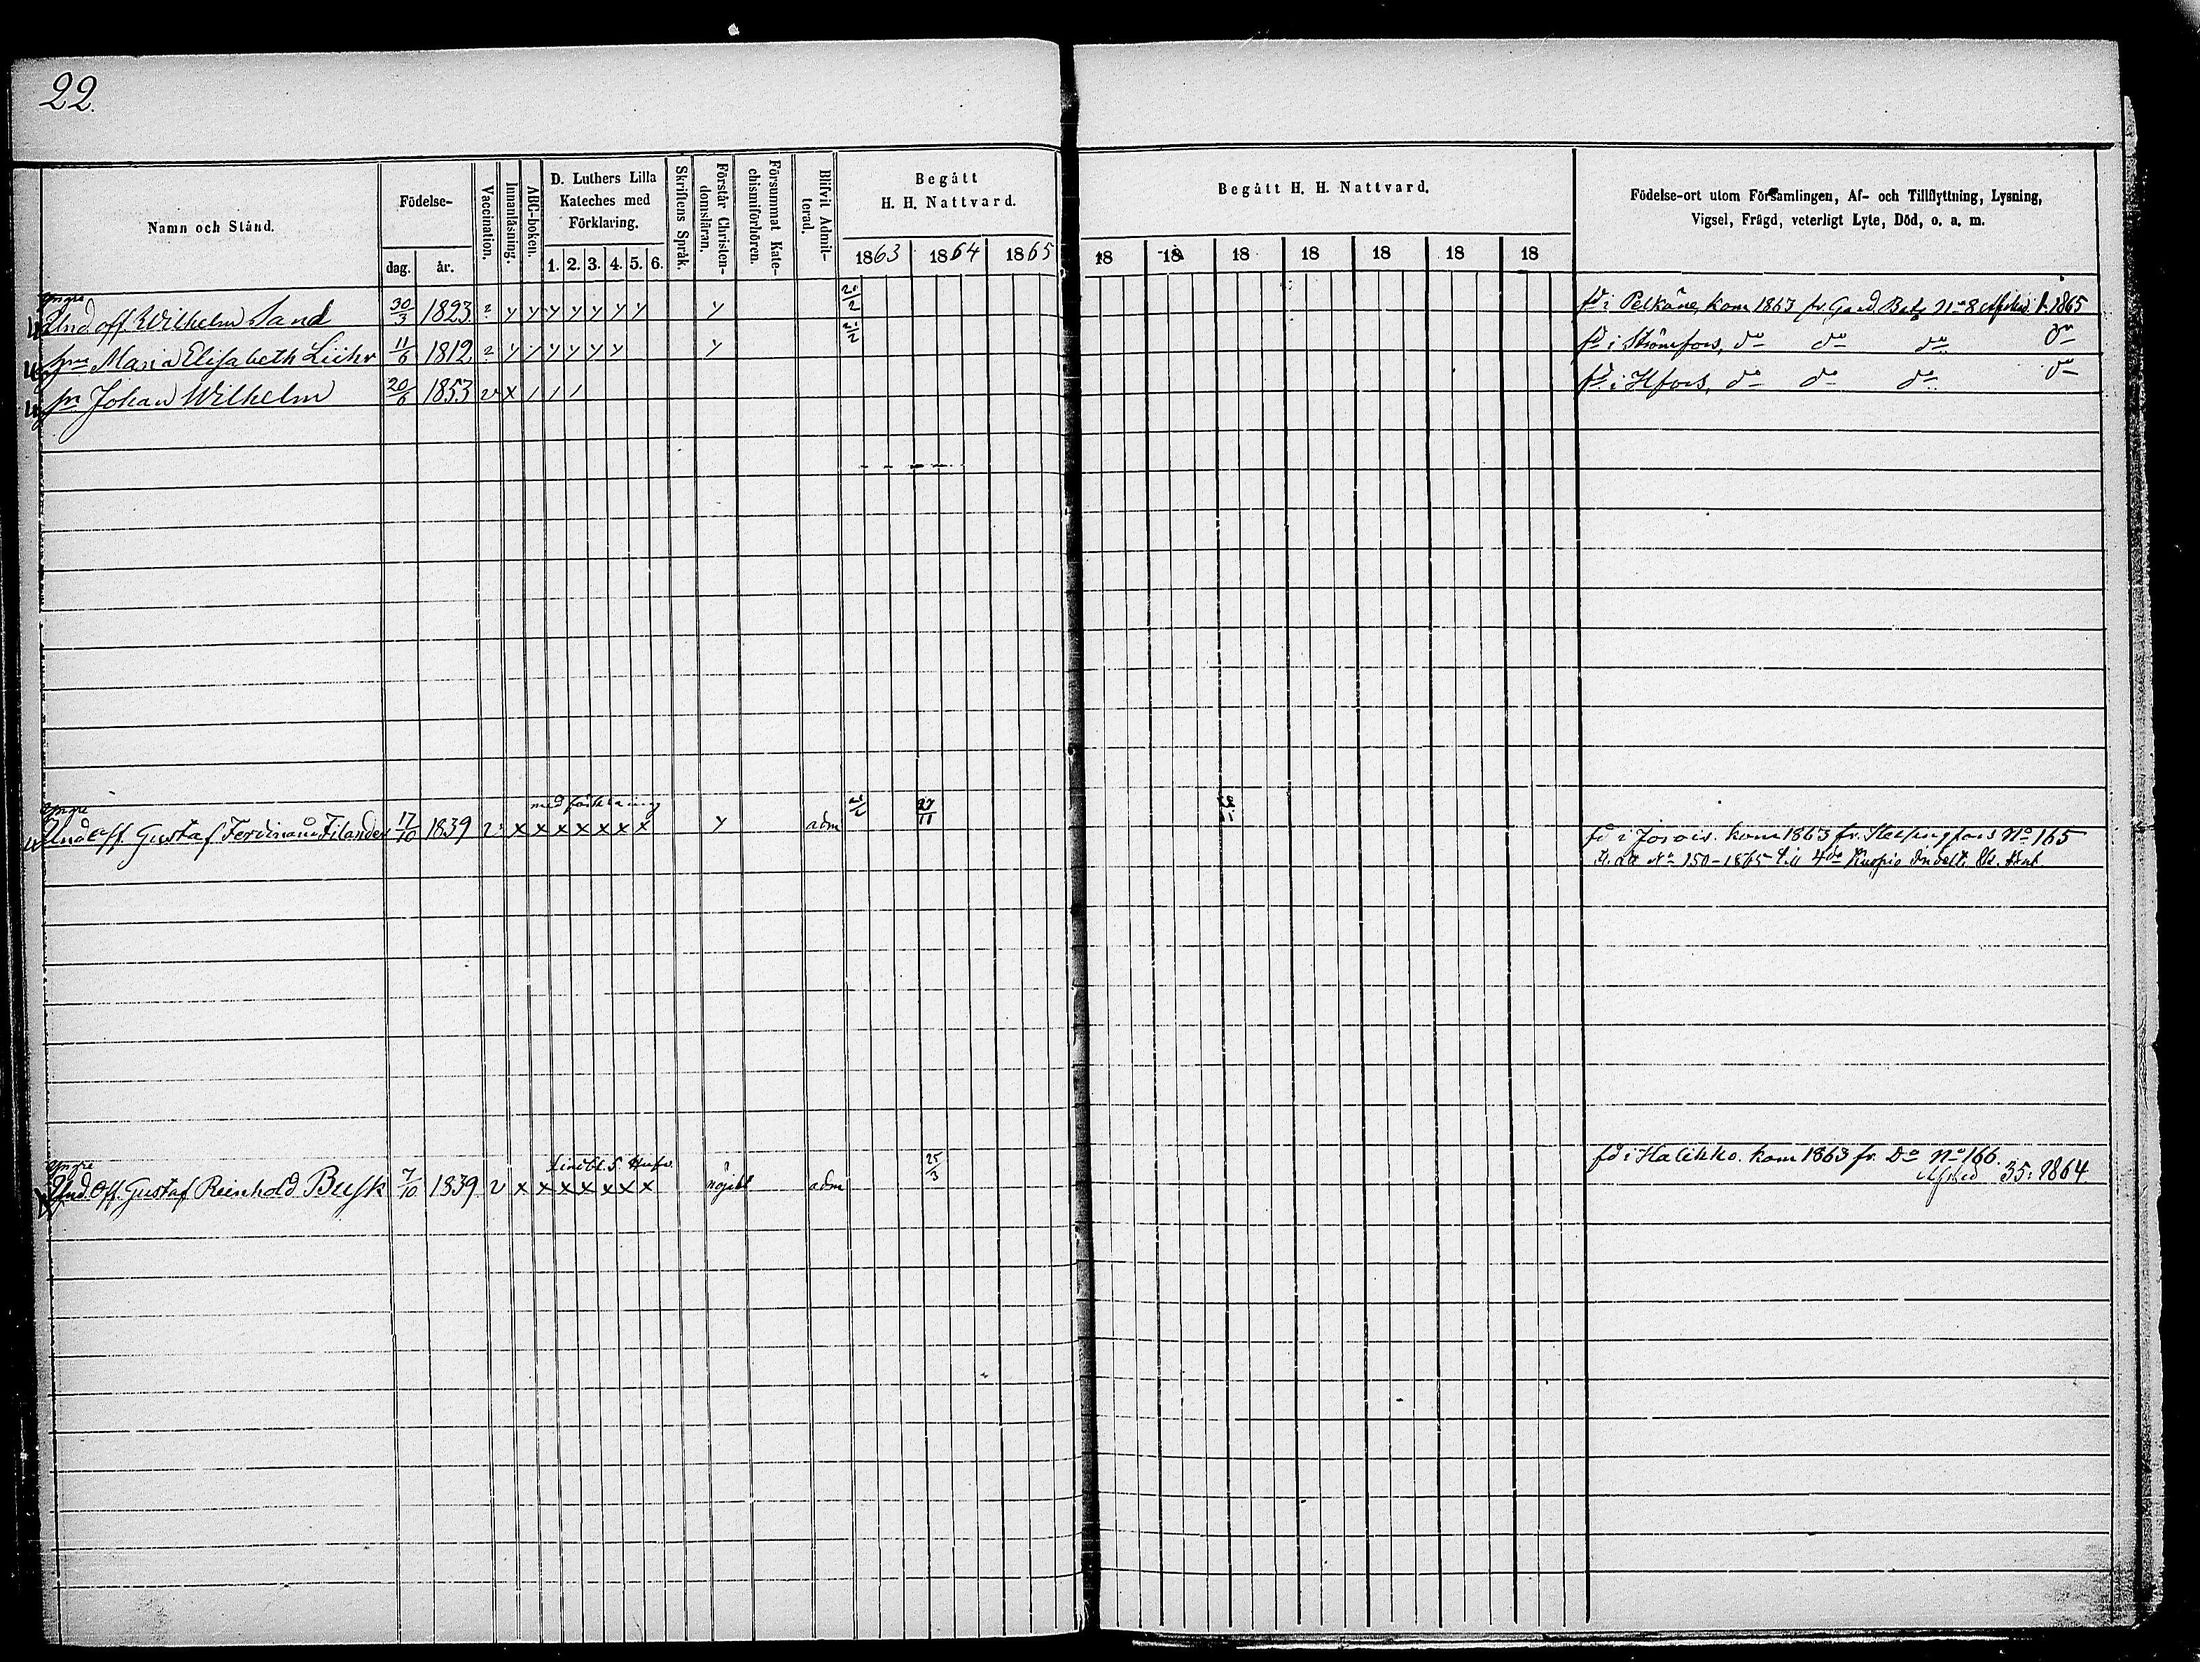 22.
Namn och Stånd.
Födelse-
dag.
år.
Vaccination.
Innanläsning.
ABC-boken.
D. Luthers Lilla
Kateches med
Förklaring.
1. 2. 3. 4. 5. 6.
Skriftens Språk.
Förstår Christen-
domsläran.
Försummat Kate-
chismiförhören.
Blifvit Admit-
terad.
Begått
H. H. Nattvard.
1863 1864 1865
Begått H. H. Nattvard.
18 18 18 18 18 18 18
Födelse-ort utom Församlingen, Af- och Tillflyttning, Lysning,
Vigsel, Frägd, veterligt Lyte, Död, o. a. m.
yngre
Und. off. Wilhelm Sand 30/3 1823 y y y y y y y y fd i Pelkäne, kom 1863 fr. Gard. Bat. No 8 1865
Maria Elisabeth 11/6 1812 y y y y y y y fd i Strömfors, do do do do
Johan Wilhelm 20/6 1853 v x / / / fd i Hfors, do do do do
yngre med förklaring
Und. off. Gustaf Ferdinand Filander 17/10 1839 v x x x x x x x y adm 27/11 fd i Jorois. kom 1863 fr. Helsingfors No 165
No 150-1865 till 4de Kuopio
yngre
Und. Off. Gustaf Reinhold Busk 7/10 1839 v x x x x x x x nöjakl adm 25/3 fd i Halikko. kom 1863 fr. Do No 166.
35: 1864